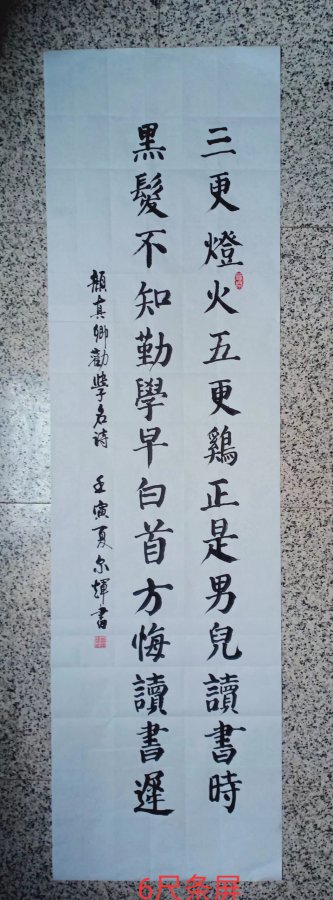 三更燈火五更鷄正是男兒讀書時
黑髮不知勤學早白首方悔讀書遲
顏真卿勸學名詩 壬寅夏尔輝書
6尺条屏